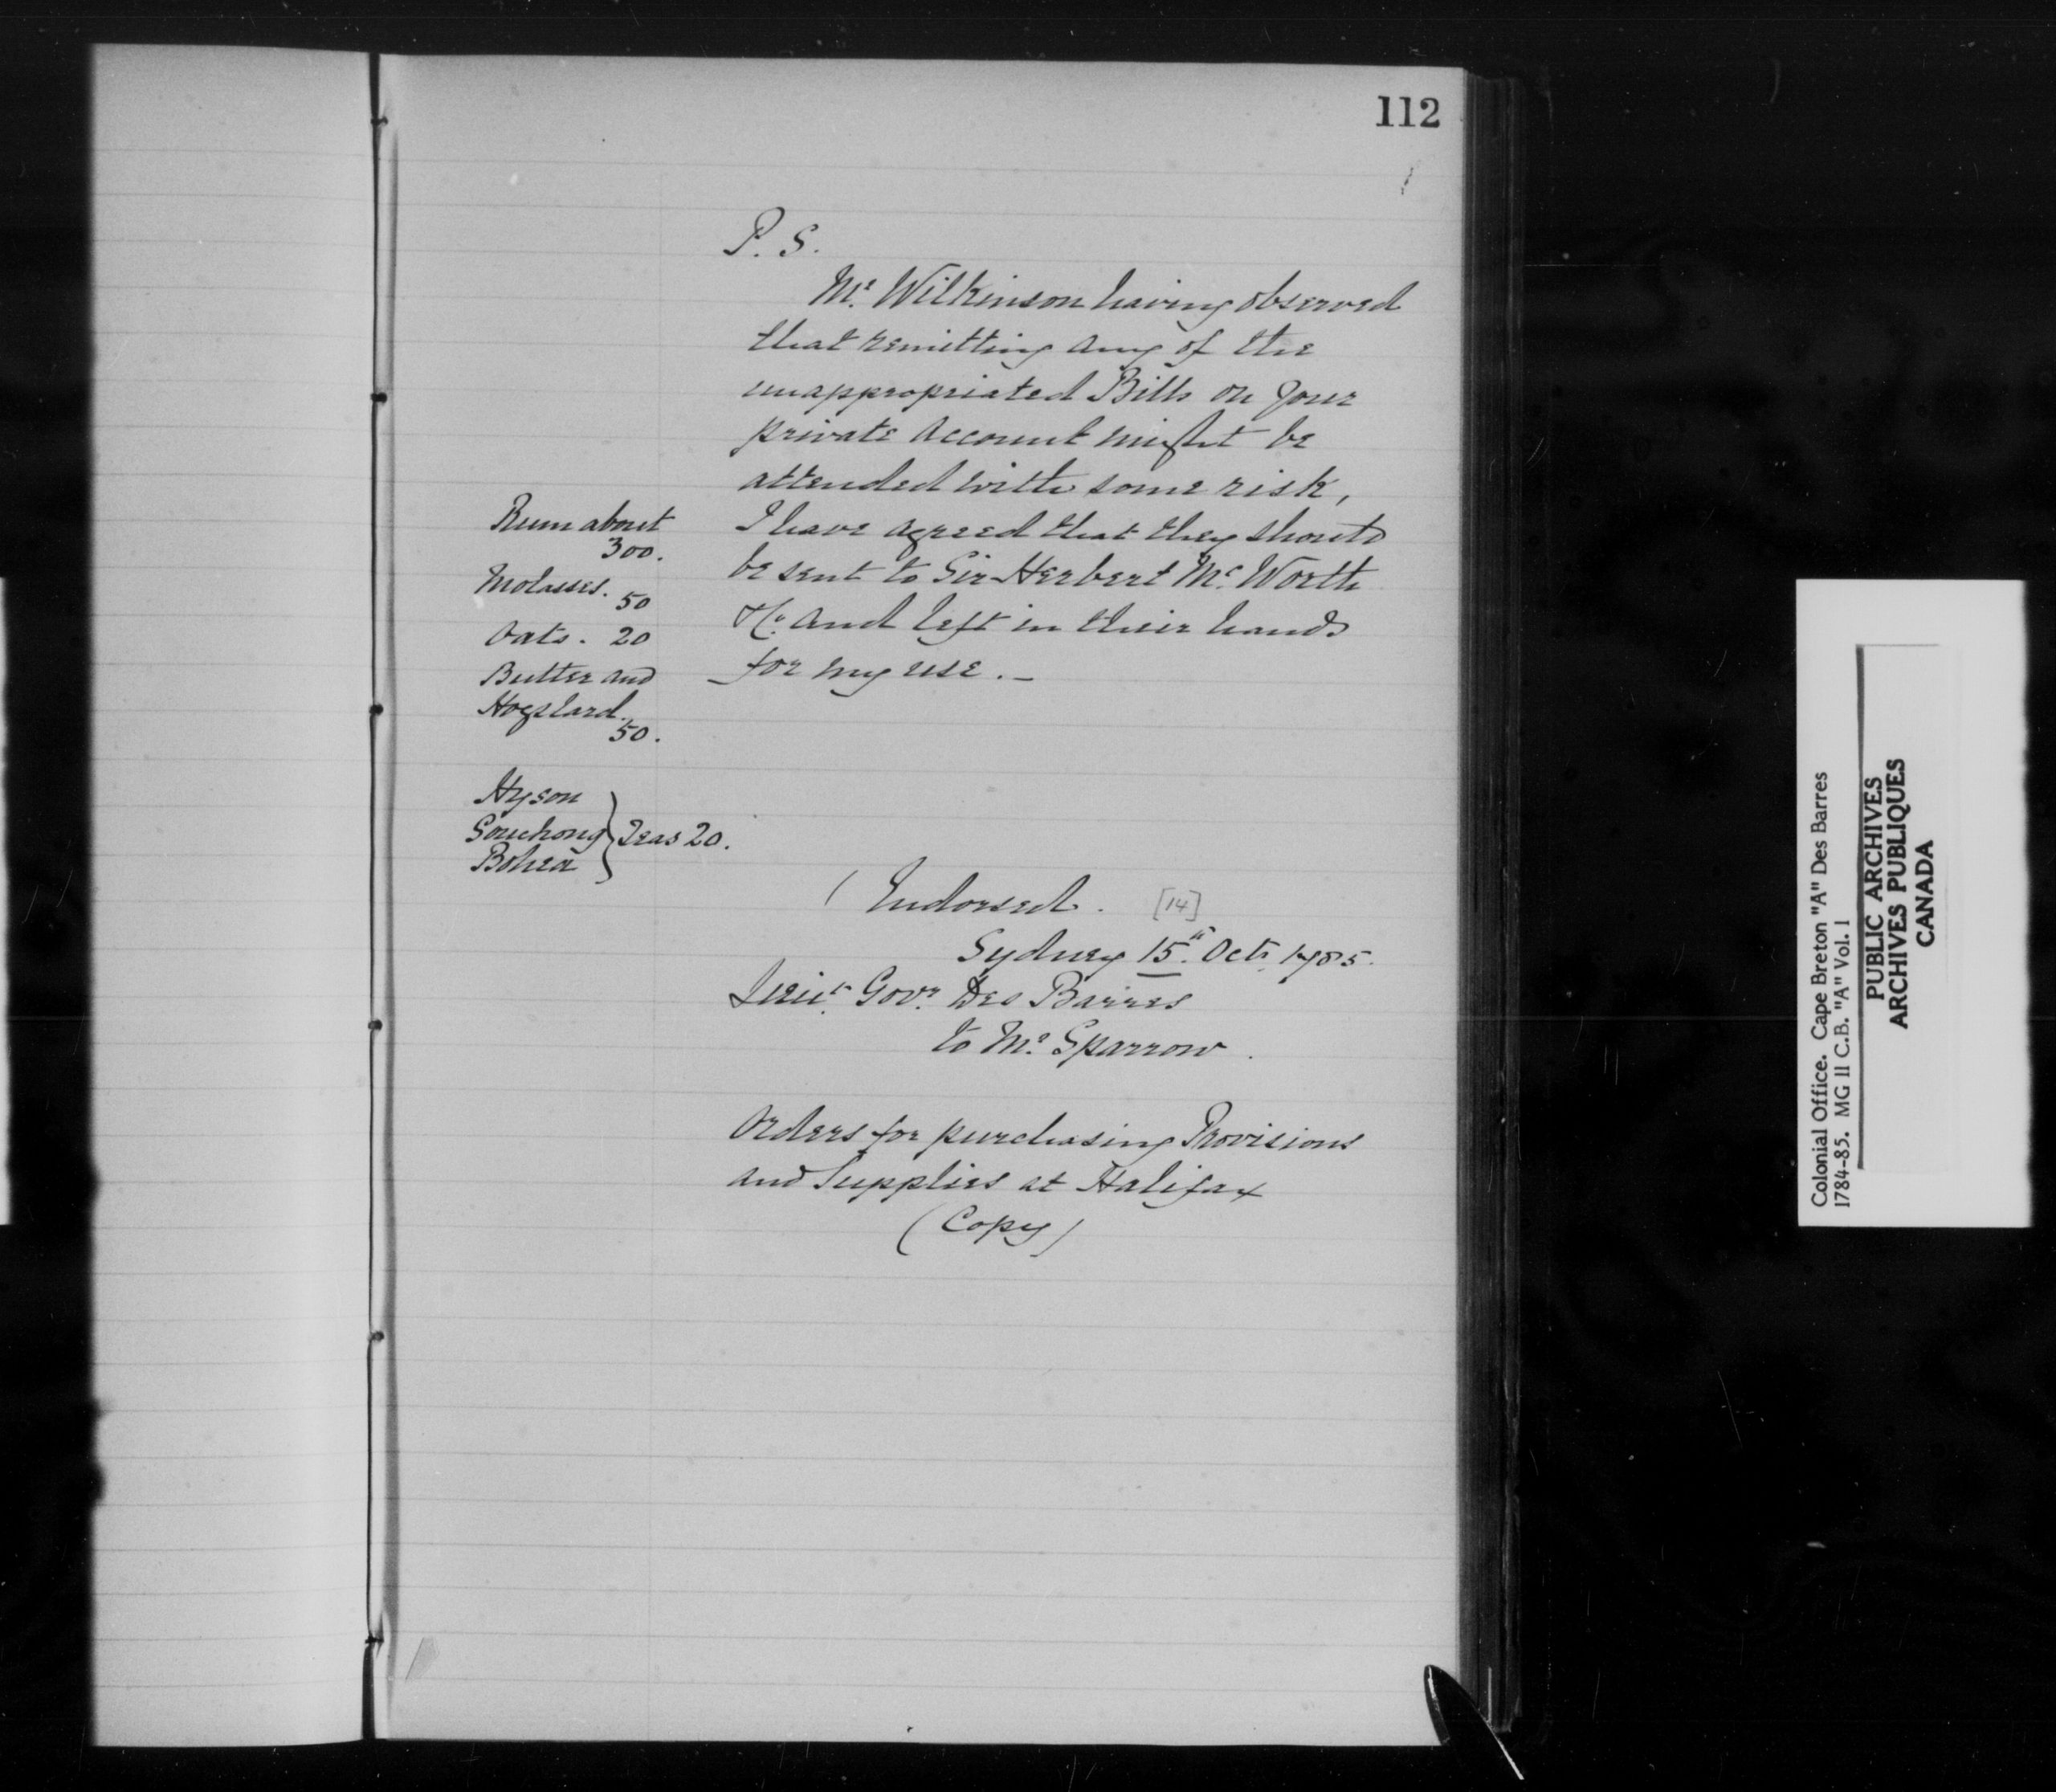 112
P. S.
Mr. Wilkinson having observed
that remitting any of the
unappropriated Bills on your
private account might be
attended with some risk,
I have agreed that they should
be sent to Sir Herbert Mc. Worth
&Co. and left in their hands
for my use. _
Rum about
300.
Molasses.
50
Oats. 20
Butter and
Hogslard.
50.
Hyson
Souchong } Teas 20.
Bohea
( Endorsed. [14]
Sydney 15th. Octr. 1785.
Lieut. Govr. Des Barres
to Mr. Sparrow.
Orders for purchasing Provisions
and Supplies at Halifax
(Copy)
Colonial Office. Cape Breton "A" Des Barres
1784-85. MG 11 C.B. "A" Vol. 1
PUBLIC ARCHIVES
ARCHIVES PUBLIQUES
CANADA